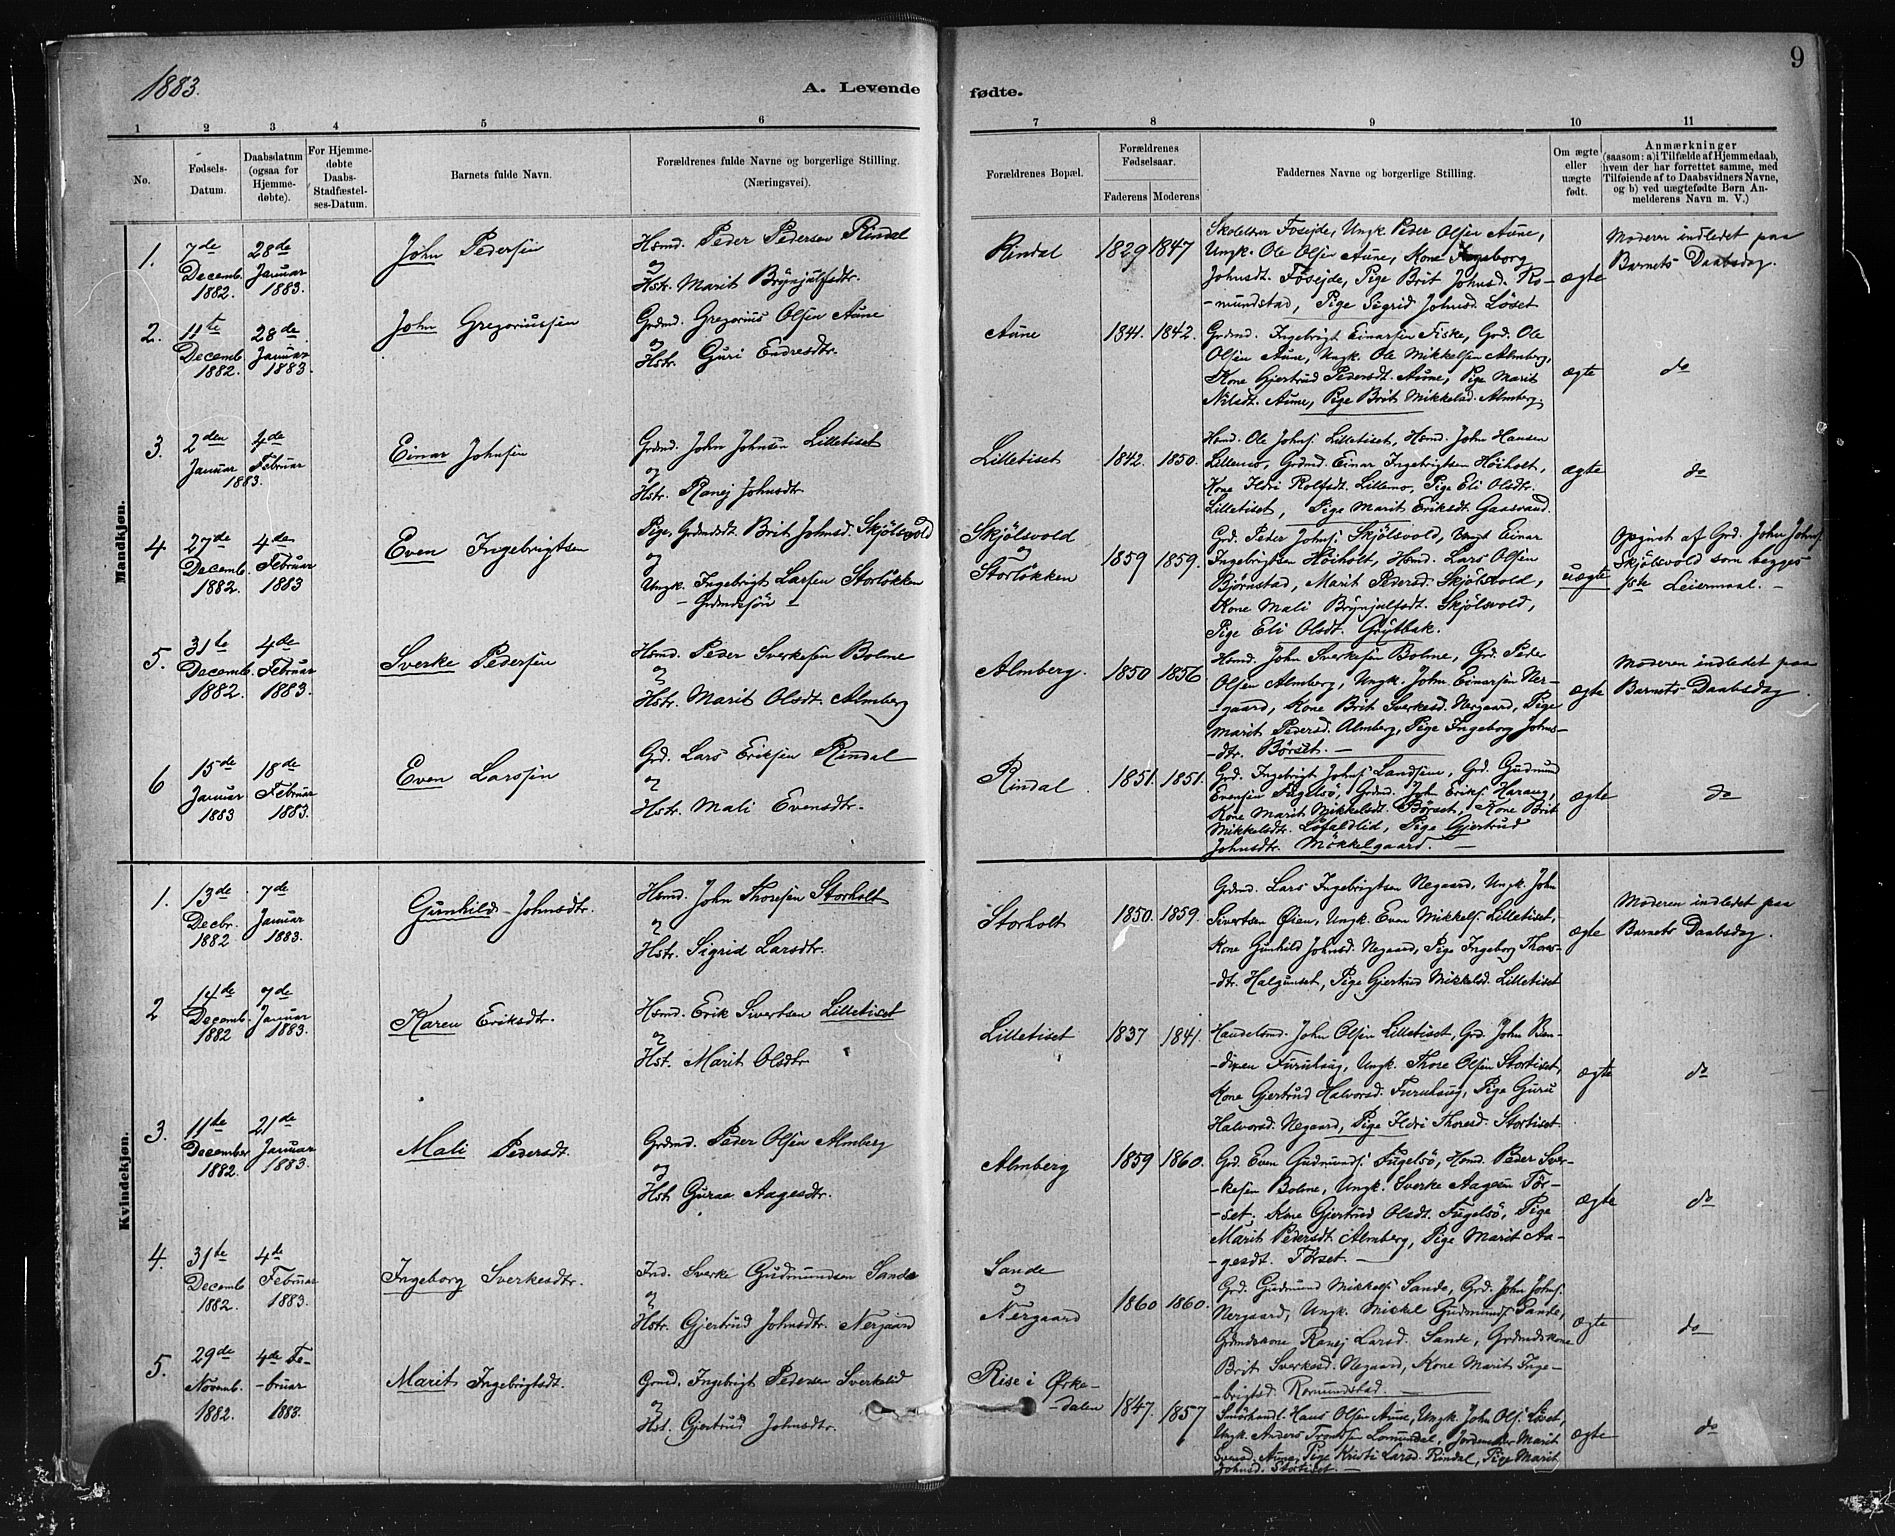 1883.
A. Levende fødte.
9
1 2 3 4 5 6 7 8 9 10 11
No.
Fødsels-Datum.
Daabsdatum (ogsaa for Hjemmedøbte).
For Hjemmedøbte Daabs-Stadfæstelses-Datum.
Barnets fulde Navn.
Forældrenes fulde Navne og borgerlige Stilling. (Næringsvei).
Forældrenes Bopæl.
Forældrenes Fødselsaar.
Faderens Moderens
Faddernes Navne og borgerlige Stilling.
Om ægte eller uægte født.
Anmærkninger
(saasom: a) i Tilfælde af Hjemmedaab, hvem der har forrettet samme, med Tilføiende af to Daabsvidners Navne, og b) ved uægtefødte Børn Anmelderens Navn m. V.)
Mandkjøn.
1. 7de Decemb. 1882. 28de Januar 1883.
John Pedersen
Hsmd. Peder Pedersen Rindal
og
Hstr. Marit Brynjulfsdtr.
Rindal
1829 1847
Skolelærer Fosejde, Ungk. Peder Olsen Aune,
Ungk. Ole Olsen Aune, Kone Ingeborg
Johnsdt. Fosejde, Pige Brit Johnsd. Ro-
-mundstad, Pige Sigrid Johnsd. Löset
ægte
Moderen indledet paa
Barnets Daabsdag.
2. 11te Decemb. 1882. 28de Januar 1883.
John Gregoriussen
Grdmd. Gregorius Olsen Aune
og
Hstr. Guri Endresdtr.
Aune
1841. 1842.
Grdmd. Ingebrigt Einarsen Fiske, Grd. Ole
Olsen Aune, Ungk. Ole Mikkelsen Almberg,
Kone Gjertrud Pedersdt. Aune, Pige Marit
Nilsdt. Aune, Pige Brit Mikkelsd. Almberg.
ægte
do
3. 2den Januar 4de Februar 1883.
Einar Johnsen
Grdmd. John Johnsen Lilletiset
og
Hstr. Ranej Johnsdtr
Lilletiset
1842. 1850.
Hsmd. Ole Johns. Lilletiset, Hsmd. John Hansen
Lillemo, Grdmd. Einar Ingebrigtsen Höiholt,
Kone Ildri Rolfsdt. Lillemo, Pige Eli Olsdtr.
Lilletiset, Pige Marit Eriksdt. Gaasvand.
ægte
do
4. 27de Decemb. 1882. 4de Februar 1883
Even Ingebrigtsen
Pige, Grdmdsdt. Brit Johnsd. Skjölsvold
og
Ungk. Ingebrigt Larsen Storlökken
- Grdmdssön -
Skjölsvold
og
Storlökken
1859 1859.
Grd. Peder Johns. Skjölsvold, Ungk Einar
Ingebrigtsen Höiholt, Hsmd. Lars Olsen
Björnstad, Marit Pedersd. Skjölsvold,
Kone Mali Brynjulfsdt. Skjölsvold,
Pige Eli Olsdt. Grytbak.
uægte
Opgivet af Grd. John Johns.
Skjölsvold som begges
1ste Leiermaal. -
5. 31te Decemb. 1882. 4de Februar 1883.
Sverke Pedersen
Hsmd. Peder Sverkesen Bolme
og
Hstr. Marit Olsdt. Almberg
Almberg.
1850 1856
Hsmd. John Sverkesen Bolme, Grd. Peder
Olsen Almberg, Ungk. John Einarsen Ner-
-gaard, Kone Brit Sverkesd. Nergaard, Pige
Marit Pedersd. Almberg, Pige Ingeborg Johns-
-dtr. Börset. -
ægte
Moderen indledet paa
Barnets Daabsdag.
6 15de Januar 1883 18de Februar 1883.
Even Larssen
Grd. Lars Eriksen Rindal
og
Hstr. Mali Evensdtr.
Rindal
1851. 1851.
Grd. Ingebrigt Johns. Landsem, Grd. Gudmund
Evensen Fugelsö, Grdmd. John Eriks. Harang,
Kone Marit Mikkelsdt. Börset, Kone Brit
Mikkelsdtr. Löfaldlid, Pige Gjertrud
Johnsdtr. Mökkelgaard. -
ægte
do
Kvindekjøn.
1. 13de Decbr. 1882 7de Januar 1883.
Gunhild Johnsdtr.
Hsmd. John Thoresen Storholt
og
Hstr. Sigrid Larsdtr.
Storholt
1850. 1859.
Grdmd. Lars Ingebrigtsen Negaard, Ungk. John
Sivertsen Øien, Ungk. Even Mikkels. Lilletiset,
Kone Gunhild Johnsd. Negaard, Pige Ingeborg Thores-
dtr. Halgunset, Pige Gjertrud Mikkelsd. Lilletiset
ægte
Moderen indledet paa
Barnets Daabsdag.
2 14de Decemb. 1882 7de Januar 1883.
Karen Eriksdtr.
Hsmd. Erik Sivertsen Lilletiset
og
Hst. Marit Olsdtr
Lilletiset
1837 1841.
Handelsmd. John Olsen Lilletiset, Grd. John Ben-
-dixen Furuhaug, Ungk. Thore Olsen Stortiset,
Kone Gjertrud Halvorsd. Furuhaug, Pige Guru
Halvorsd. Negaard, Pige Ildri Thoresd. Stortiset
ægte
do
3. 11te December 1882. 21de Januar 1883.
Mali Pedersdt.
Grdmd. Peder Olsen Almberg
og
Hst. Guraa Aagesdtr.
Almberg
1859 1860.
Grd. Even Gudmunds. Fugelsö, Hsmd. Peder Sver-
-kesen Bolme, Ungk. Sverke Aagesen Tör-
-set. Kone Gjertrud Olsdt. Fugelsö, Pige
Marit Pedersdt Almberg, Pige Marit Aa-
-gesdt. Törset. -
ægte
do
4. 31te Decemb 1882. 4de Februar 1883.
Ingeborg Sverkesdtr.
Ind. Sverke Gudmundsen Sande
og
Hstr. Gjertrud Johnsdtr. Nergaard
Sande
og
Nergaard
1860 1860.
Grd. Gudmund Mikkels. Sande, Grd. John Johns.
Nergaard, Ungk. Mikkel Gudmunds. Sande,
Grdmdskone Ranej Larsd. Sande, Grdmdskone
Brit Sverkesd. Negaard, Kone Marit Inge-
-brigtsd. Romundstad. -
ægte
do
5. 29de Novemb. 1882. 4de Fe-
-bruar 1883.
Marit Ingebrigtsdt.
Grdmd. Ingebrigt Pedersen Sverkelid
og
Hst. Gjertrud Johnsdtr.
Rise i Ørke-
-dalen
1847. 1857
Hans Olsen Aune, Ungk. John Ols. Löset,
Ungk. Anders Tronsen Lomundal, Jordemoder Marit
Svensd. Aune, Pige Kristi Larsd. Rindal, Pige Marit
Johnsd. Stortiset. -
ægte
do